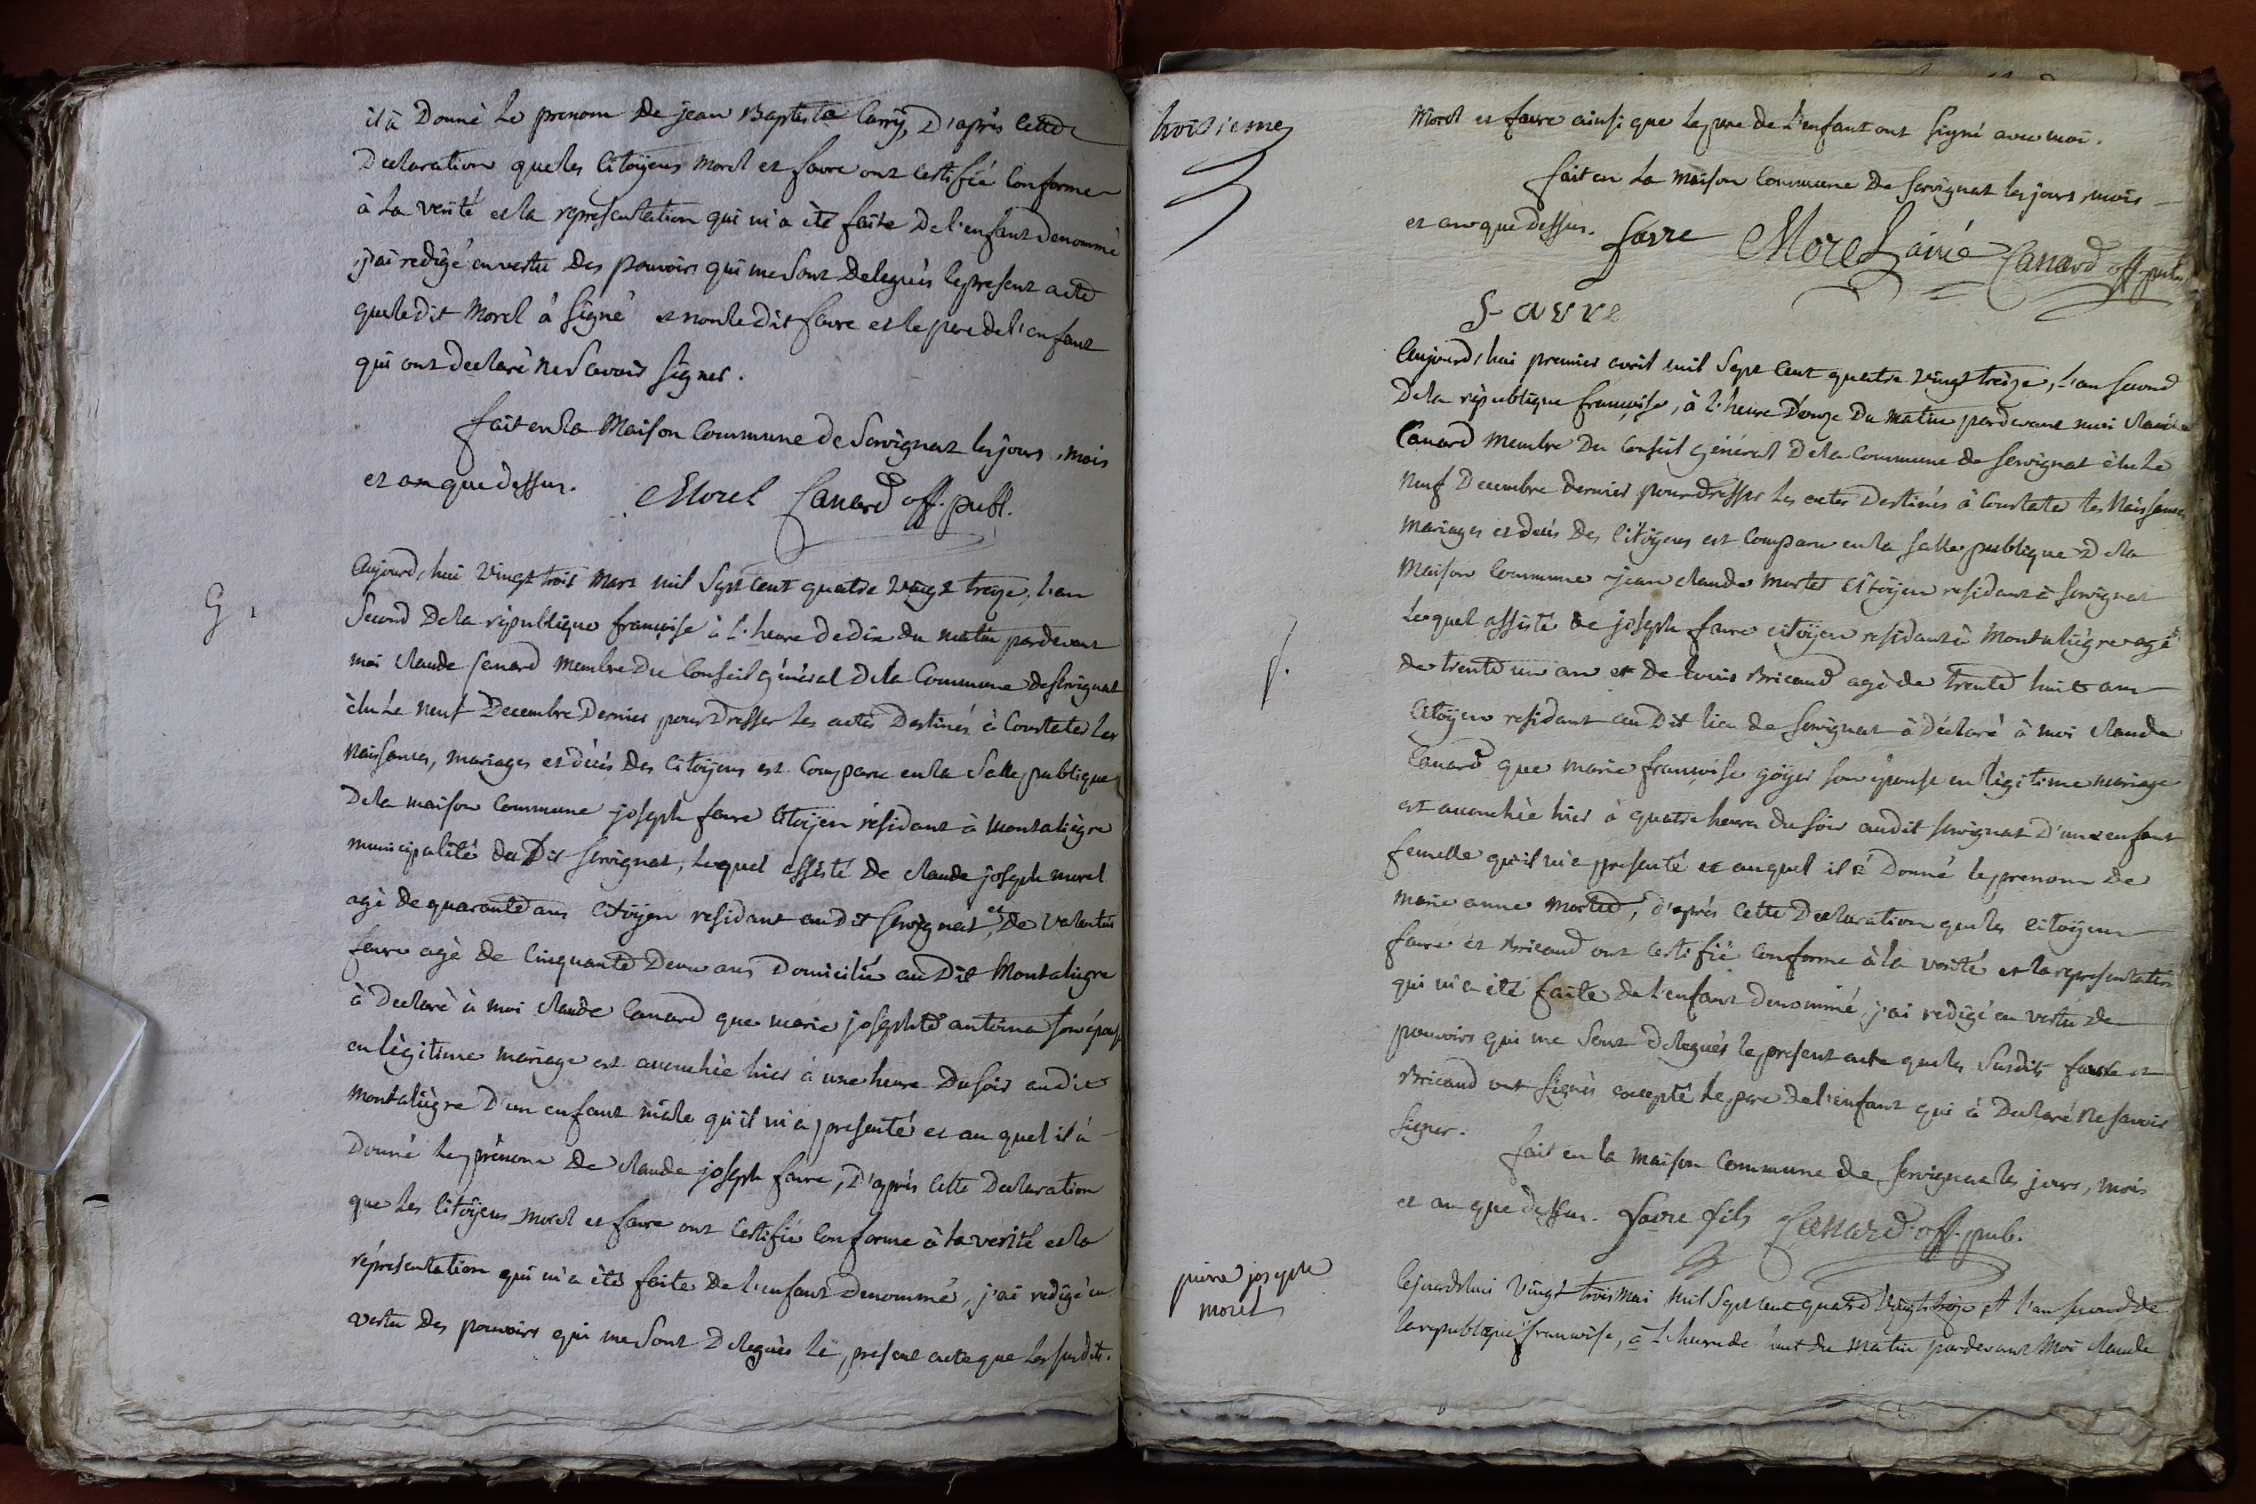 il à Donné le prenom de jean Baptiste Carry, D'après cette
Declaration que les Citoÿens Morel et favre ont certifié conforme
à la verité et la représentation qui m'a été faite De l'enfant denommé
j'ai redigé en vertu des pouvoirs qui me sont Delegués le present acte
que le dit Morel à signé et non le dit favre et le pere de l'enfant
qui ont declaré ne savoir signer.
fait en la Maison Commune de Servignat les jours, mois
et an que dessus. Morel Canard off. publ.
G.
Aujourd'hui vingt trois Mars mil Sept Cent quatre vingt treize, l'an
Second De la république françoise à l'heure de dix du matin pardevant
moi claude Canard Membre Du Conseil général De la Commune de Servignat
élu Le neuf Decembre Dernier pour Dresser les actes Destinés à Constater les
Naissances, mariages et décès des Citoÿens est Comparu en la Salle publique
De la maison Commune joseph favre Citoÿen résidant à Montaliègre
municipalité du Dit Servignat, lequel assisté De claude joseph morel
agé de quarante ans Citoÿen residant au dit Servignat, et De Valentin
favre agé de Cinquante Deux ans Domicilié au Dit Montaliegre
à declaré à moi claude Canard que marie josephte antoina son épouse
en légitime mariage est accouchée hier à une heure Du soir au dit
Montaliègre D'un enfant mâle qu'il m'a presenté et au quel il à
Donné le prénom De claude joseph favre, D'après cette Declaration
que les Citoÿens Morel et favre ont certifié conforme à la verité et la
répresentation qui m'a été faite De l'enfant Denommé, j'ai redigé en
vertu des pouvoirs qui me sont Delegués le present acte que les susdits
troisieme
Morel et favre ainsi que le pere de l'enfant ont signé avec moi.
fait en La maison Commune De Servignat les jours, mois
et an que dessus. favre Morel L'ainé Canard off. publ.
Favre
Aujourd'hui premier avril mil Sept Cent quatre vingt treize, l'an second
De la république françoise, à l'heure D'onze Du matin pardevant moi claude
Canard Membre Du Conseil général De la Commune de Servignat élu le
neuf Decembre dernier pour dresser les actes Destinés à Constater les Naissances
Mariages et décès Des Citoÿens est Comparu en la salle publique De la
Maison Commune jean claude Mortel Citoÿen residant à Servignat
Lequel assisté de joseph favre citoÿen residant à Montaliégre agé
de trente un an et De Louis Bricaud agé de trente huit ans
Citoÿen residant au Dit lieu de Servignat à Déclaré à moi claude
Canard que marie françoise goÿer son épouse en légitime mariage
est accouchée hier à quatre heures du soir au dit Servignat D'un enfant
femelle qu'il m'a presenté et auquel il à Donné le prenom De
marie anne Mortel, d'après cette Declaration que les citoÿens
favre et Bricaud ont certifié conforme à la verité et la representation
qui m'a été faite de l'enfant denommé, j'ai redigé en vertu de
pouvoirs qui me sont Delegués le present acte que les Susdits favre et
Bricaud ont signés excepté le pere de l'enfant qui à Declaré ne savoir
signer.
fait en la maison Commune de Servignat les jours, mois
et an que dessus. favre fils Canard off. pub.
piere joseph
morel
Cejourdhui vingt trois mai mil Sept Cent quatre vingt treize et l'an second de
la republique francoise, à l'heure de huit du matin pardevant Moi claude